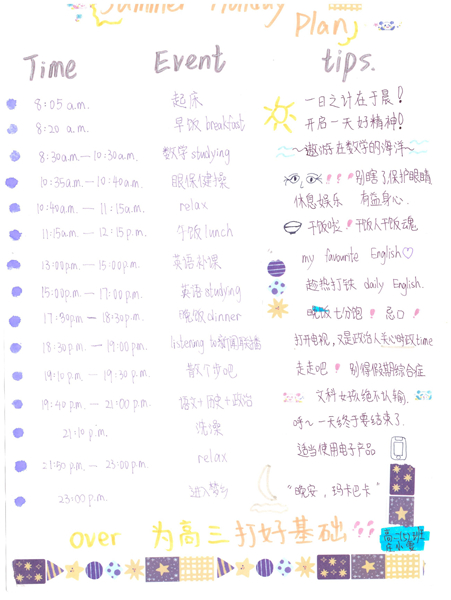 Summer Holiday
Plan
Time Event tips.
8:05 a.m. 起床 一日之计在于晨!
8:20 a.m. 早饭 breakfast 开启一天好精神!
8:30a.m—10:30a.m. 数学 studying ~遨游在数学的海洋~
10:35a.m—10:40a.m. 眼保健操 !!!别瞎了,保护眼睛
10:40a.m.—11:15a.m. relax 休息娱乐 有益身心.
11:15a.m—12:15p.m. 午饭 lunch 干饭啦!干饭人干饭魂
13:00p.m—15:00p.m. 英语补课 my favourite English♡
15:00p.m.—17:00p.m. 英语 studying 趁热打铁 daily English.
17:30pm—18:30p.m. 晚饭 dinner 晚饭七分饱!忌口!
18:30p.m.—19:00p.m. listening to新闻联播 打开电视,又是政治人关心时政time
19:10p.m—19:30p.m. 散个步吧 走走吧!别得假期综合症
19:40p.m—21:00p.m. 语文+历史+政治 文科女孩绝不认输.
21:10p.m. 洗澡 呼~一天终于要结束了.
21:50p.m.—23:00p.m. relax 适当使用电子产品
23:00p.m. 进入梦乡 “晚安,玛卡巴卡”
over 为高三打好基础!!